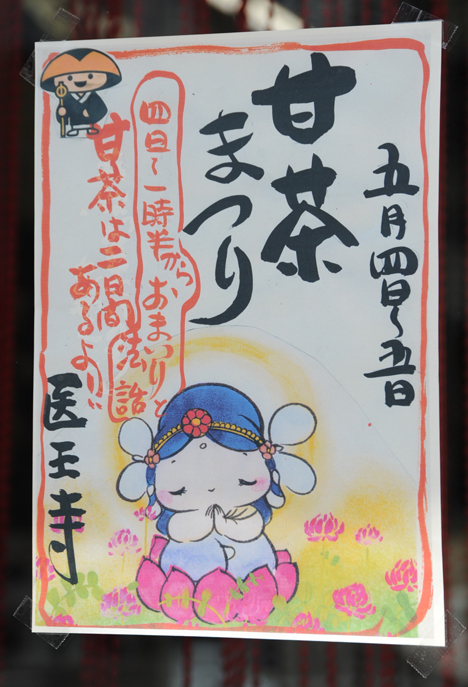 五月四日～五日
甘茶
まつり
四日～一時半から
おまいりと
法話
甘茶は二日間
あるよ!!
医王寺